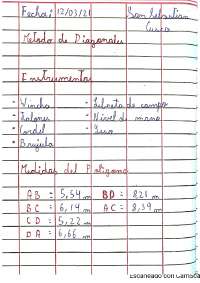 Fecha: 12/03/21 San Sebastian
Cusco
Metodo de Diagonales
Instrumentos
- Wincha - Libreta de campo
- Jalones - Nivel de mano
- Cordel - Yeso
- Brujula
Medidas del Poligono
AB = 5,54 m BD = 8,21 m
BC = 6,14 m AC = 8,39 m
CD = 5,22 m
DA = 6,66 m
Escaneado con CamSca